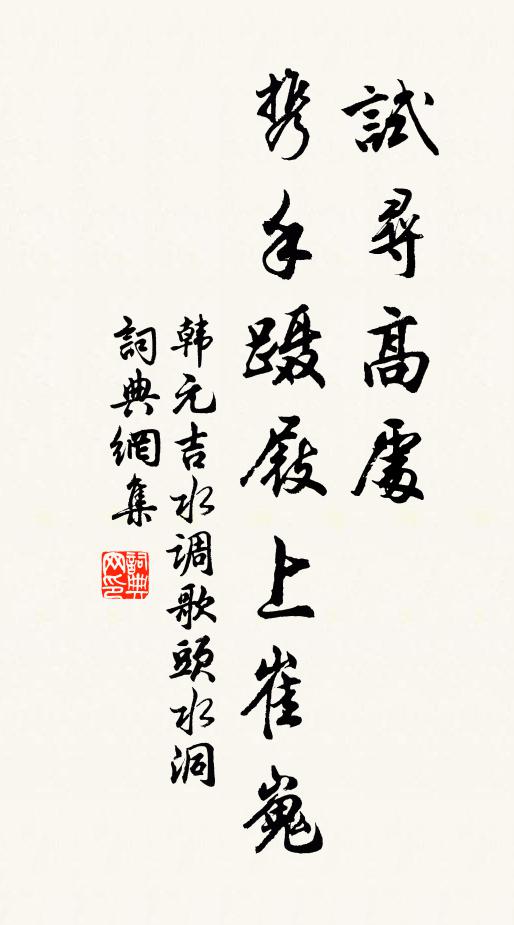 試尋高處
携手躡屐上崔嵬
韩元吉水調歌頭水洞
詞典網集
詞典网印